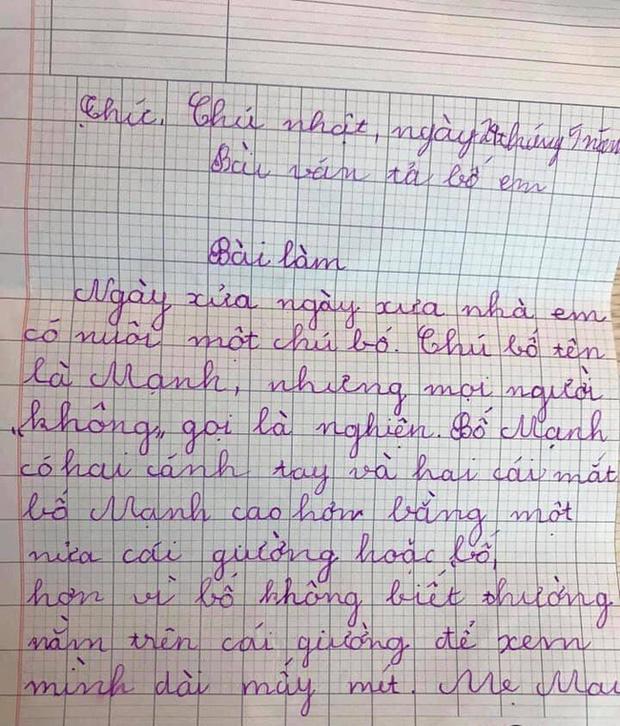 Thức, Chủ nhật, ngày tháng năm
Bài văn tả bố em
Bài làm
Ngày xửa ngày xưa nhà em
có nuôi một chú bố. Chú bố tên
là Mạnh, nhưng mọi người
"không" gọi là nghiện. Bố Mạnh
có hai cánh tay và hai cái mắt
bố Mạnh cao hơn bằng một
nửa cái giường hoặc bố,
hơn vì bố không biết thường
nằm trên cái giường để xem
mình dài mấy mét. Mẹ Mai